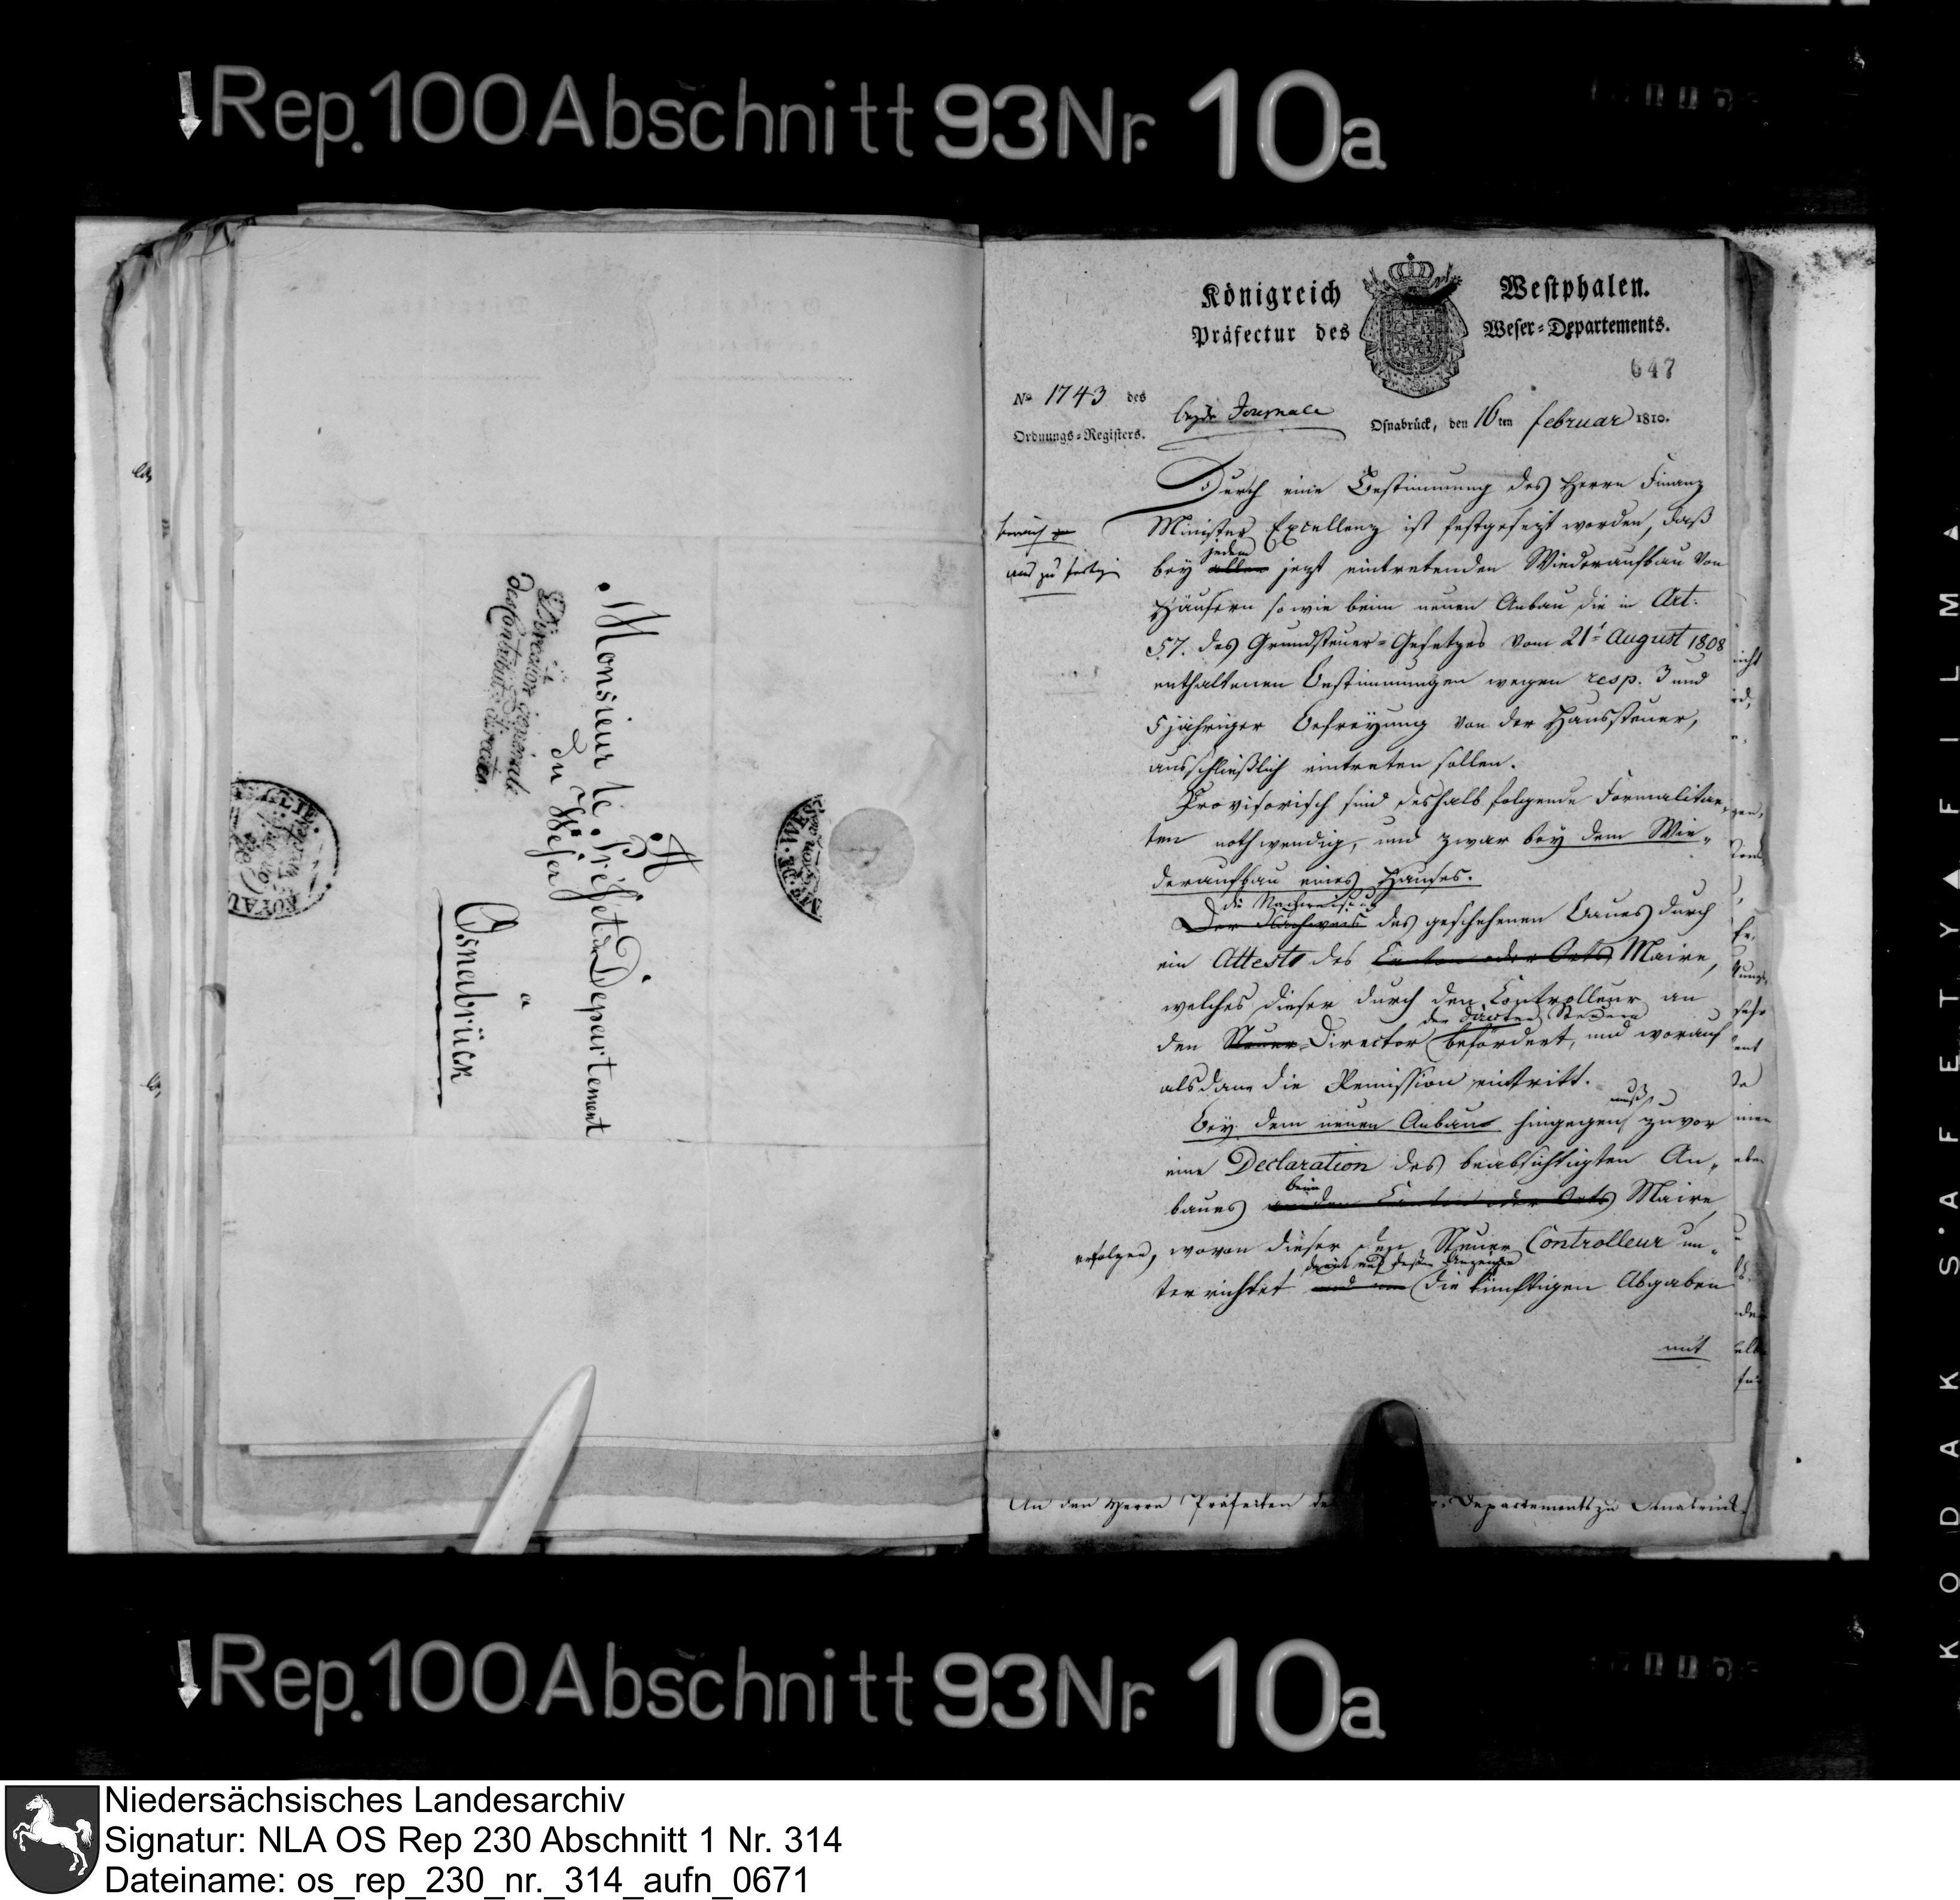 Rep. 100 Abschnitt 93 Nr. 10a
A
Monsieur le Préfet du Departement
du Weser
a
Osnabrück
Direction générale
des Contribut: directes.
Königreich Westphalen.
Präfectur des Weser-Departements.
647
No. 1743 des
Ordnungs-Registers.
Osnabrück, den 16ten Februar 1810.
aus zu fertigen
Durch eine Bestimmung des Herrn Finanz
Minister Excellenz ist festgesezt worden, daß
jedem
bey allen jezt eintretenden Wiederaufbau von
Häusern sowie beim neuen Anbau die in Art.
57. des Grundsteuer-Gesetzes vom 21t August 1808
enthaltenen Bestimmungen wegen resp. 3 und
5 jähriger Befreyung von der Haussteuer,
ausschließlich eintreten sollen.
Provisorisch sind deshalb folgende Formalitae-
ten nothwendig, und zwar bey dem Wie-
deraufbau eines Hauses.
die Nachweisung
Der Nachweis des geschehenen Baues durch
ein Attest des Canton oder Orts Maire,
welches dieser durch den Controlleur an
der directen Steuern
den Steuer-Director befördert, und worauf
alsdann die Remission eintritt.
muß
Bey dem neuen Anbau hingegen zuvor
eine Declaration des beabsichtigten An-
beim
baues an den Canton oder Orts Maire
erfolgen, wovon dieser den Steuer Controlleur un-
damit auf dessen Anzeige
terrichtet und die künftigen Abgaben
mit
An den Herrn Präfecten des Departements zu Osnabrück.
Rep. 100 Abschnitt 93 Nr. 10a
KODAK SAFETY FILM
Niedersächsisches Landesarchiv
Signatur: NLA OS Rep 230 Abschnitt 1 Nr. 314
Dateiname: os_rep_230_nr._314_aufn_0671